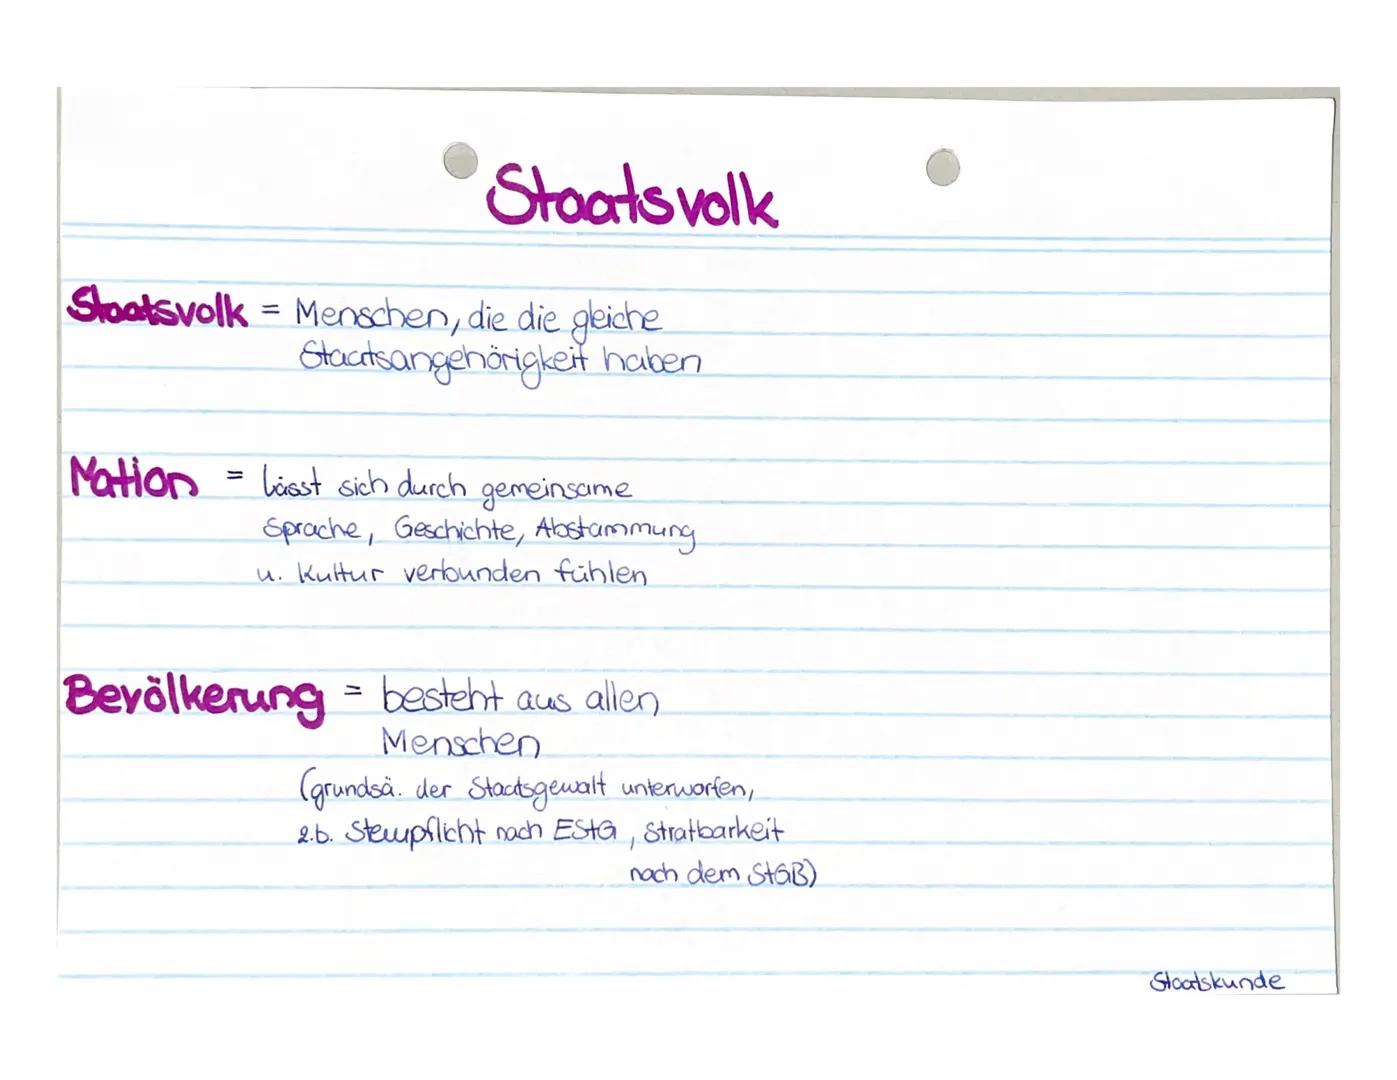 Staatsvolk
Staatsvolk = Menschen, die die gleiche
Staatsangehörigkeit haben
Nation = lässt sich durch gemeinsame
Sprache, Geschichte, Abstammung
u. Kultur verbunden fühlen
Bevölkerung = besteht aus allen
Menschen
(grundsä. der Staatsgewalt unterworfen,
z.b. Steuerpflicht nach EStG, Strafbarkeit
nach dem StGB)
Staatskunde